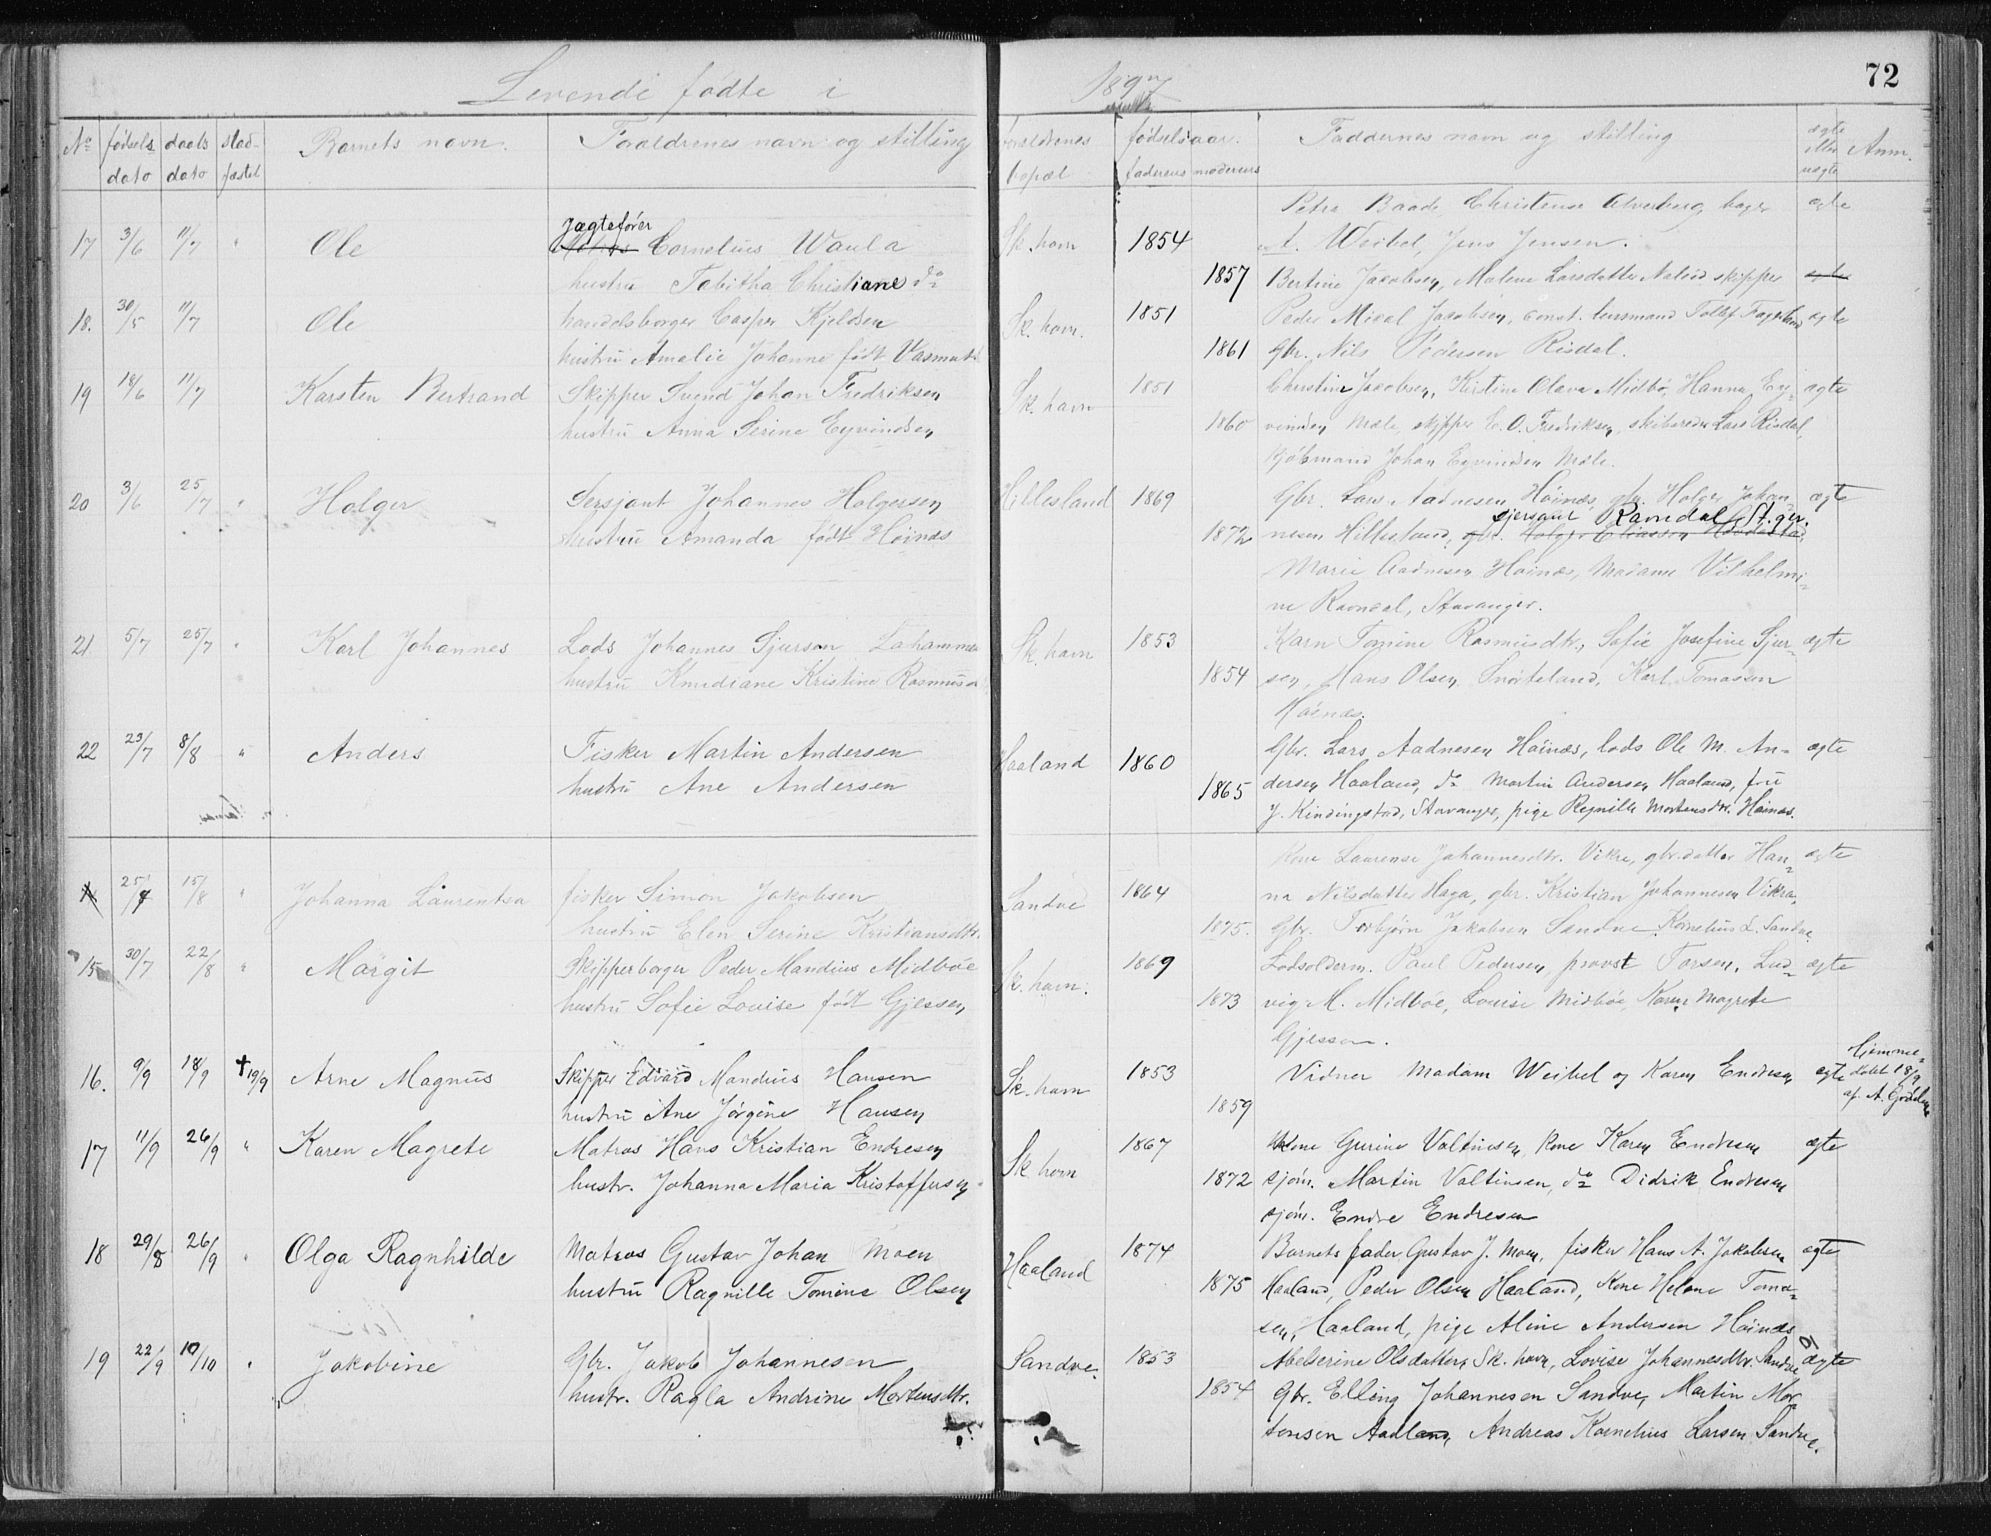 Levende fødte i 1897
72
No fødsels dato daabs dato stad- fæstet Barnets navn. Foraldrenes navn og stilling
foraldrenes bopæl fødselsaar. faderens moderens Faddernes navn og stilling ægte eller uægte Anm.
Petra Baade, Christense Alverberg, ægte
17 3/6 11/7 " Ole Jægtefører Cornelius Waula Sk. havn 1854 A. Weibel, Jens Jensen.
hustru Tabitha Christiane do 1857 Bertine Jacobsen, Malene Larsdatter skipper
18. 30/5 11/7 Ole handelsborger Casper Kjeldsen Sk. havn. 1851 Peder Mical Jacobsen, const. lensmand Tollef ægte
hustru Amalie Johanne født Vasmuth 1861 Gbr. Nils Pedersen Risdal.
19 18/6 11/7 Karsten Bertrand Skipper Svend Johan Fredriksen Sk. havn 1851 Christine Jacobsen, Kirtine Olava Midbø, Hanna Ey- ægte
hustru Anna Serine Eyvindsen 1860 vindsen Mæle, skipper E. O. Fredriksen, skibsreder Lars Risdal,
kjøbmand Johan Eyvindsen Mæle.
20 3/6 25/7 " Holger Sersjant Johannes Holgersen Hillesland 1869 Gbr. Lars Aadnesen Høinæs, gbr. Holger Johan- ægte
sjersant Ravndal, St.ger.
hustru Amanda født Høinæs 1872 nesen Hillesland, gbr. Holger Eliassen
Marie Aadnesen Høinæs, Madame Vilhelmi-
ne Ravndal, Stavanger.
21 5/7 25/7 " Karl Johannes Lods Johannes Sjurson Lahammer Sk. havn 1853 Karn Tomine Rasmusdtr., Sofie Josefine Sjur- ægte
hustru Knudiane Kristine Rasmusd 1854 sen, Hans Olsen Snørteland, Karl Tomassen
Høinæs.
22 23/7 8/8 " Anders Fisker Martin Andersen Haaland 1860 Gbr. Lars Aadnesen Høinæs, lods Ole M. An- ægte
hustru Ane Andersen 1865 dersen Haaland, do Martin Andersen Haaland, fru
J. Kindingstad, Stavanger, pige Regnille Mortensdtr. Høinæs.
Kone Laurense Johannesdtr. Vikre, gbr.datter Han- ægte
25/7 15/8 " Johanna Laurentsa fisker Simon Jakobsen Sandve 1864 na Nilsdatter Haga, gbr. Kristian Johannesen Vikra,
hustru Elen Serine Kristiansdtr. 1875. Gbr. Torbjørn Jakobsen Sandve. Kornelius L. Sandve.
15 30/7 22/8 " Margit Skipperborger Peder Mandius Midbøe Sk. havn. 1869 Lodsolderm. Paul Pedersen, provst Torsen, Lud- ægte
hustru Sofie Louise født Gjessen 1873 vig M. Midbøe, Louise Midbøe, Karen Magrete
Gjessen.
16. 9/9 18/9 †19/9 Arne Magnus Skipper Edvard Mandius Hansen Sk. havn 1853 Vidner Madam Weibel og Karen Endresen ægte hjemme- døbt 18/9 af A.
hustru Ane Jørgine Hansen 1859
17 11/9 26/9 " Karen Magrete Matros Hans Kristian Endresen Sk. havn 1867 Kone Gurine Valtinsen, Kone Karen Endresen ægte
hustr. Johanna Maria Kristoffersen 1872 sjøm. Martin Valtinsen, do Didrik Endresen
sjøm. Endre Endresen
18 29/8 26/9 " Olga Ragnhilde Matros Gustav Johan Moen Haaland 1874 Barnets fader Gustav J. Moen, fisker Hans A. Jakobsen ægte
hustru Ragnille Tomine Olsen 1875 Haaland, Peder Olsen Haaland, Kone Helene Toma-
sen, Haaland, pige Aline Andersen Høinæs
19 22/9 10/10 " Jakobine Gbr. Jakob Johannesen Sandve. 1853 Abelserine Olsdatter, Sk. havn, Lovise Johannesdtr. Sandve ægte
hustr. Ragla Andrine Mortensdtr. 1854 Gbr. Elling Johannesen Sandve, Martin Mor-
tensen Aadland, Andreas Kornelius Larsen Sandve.